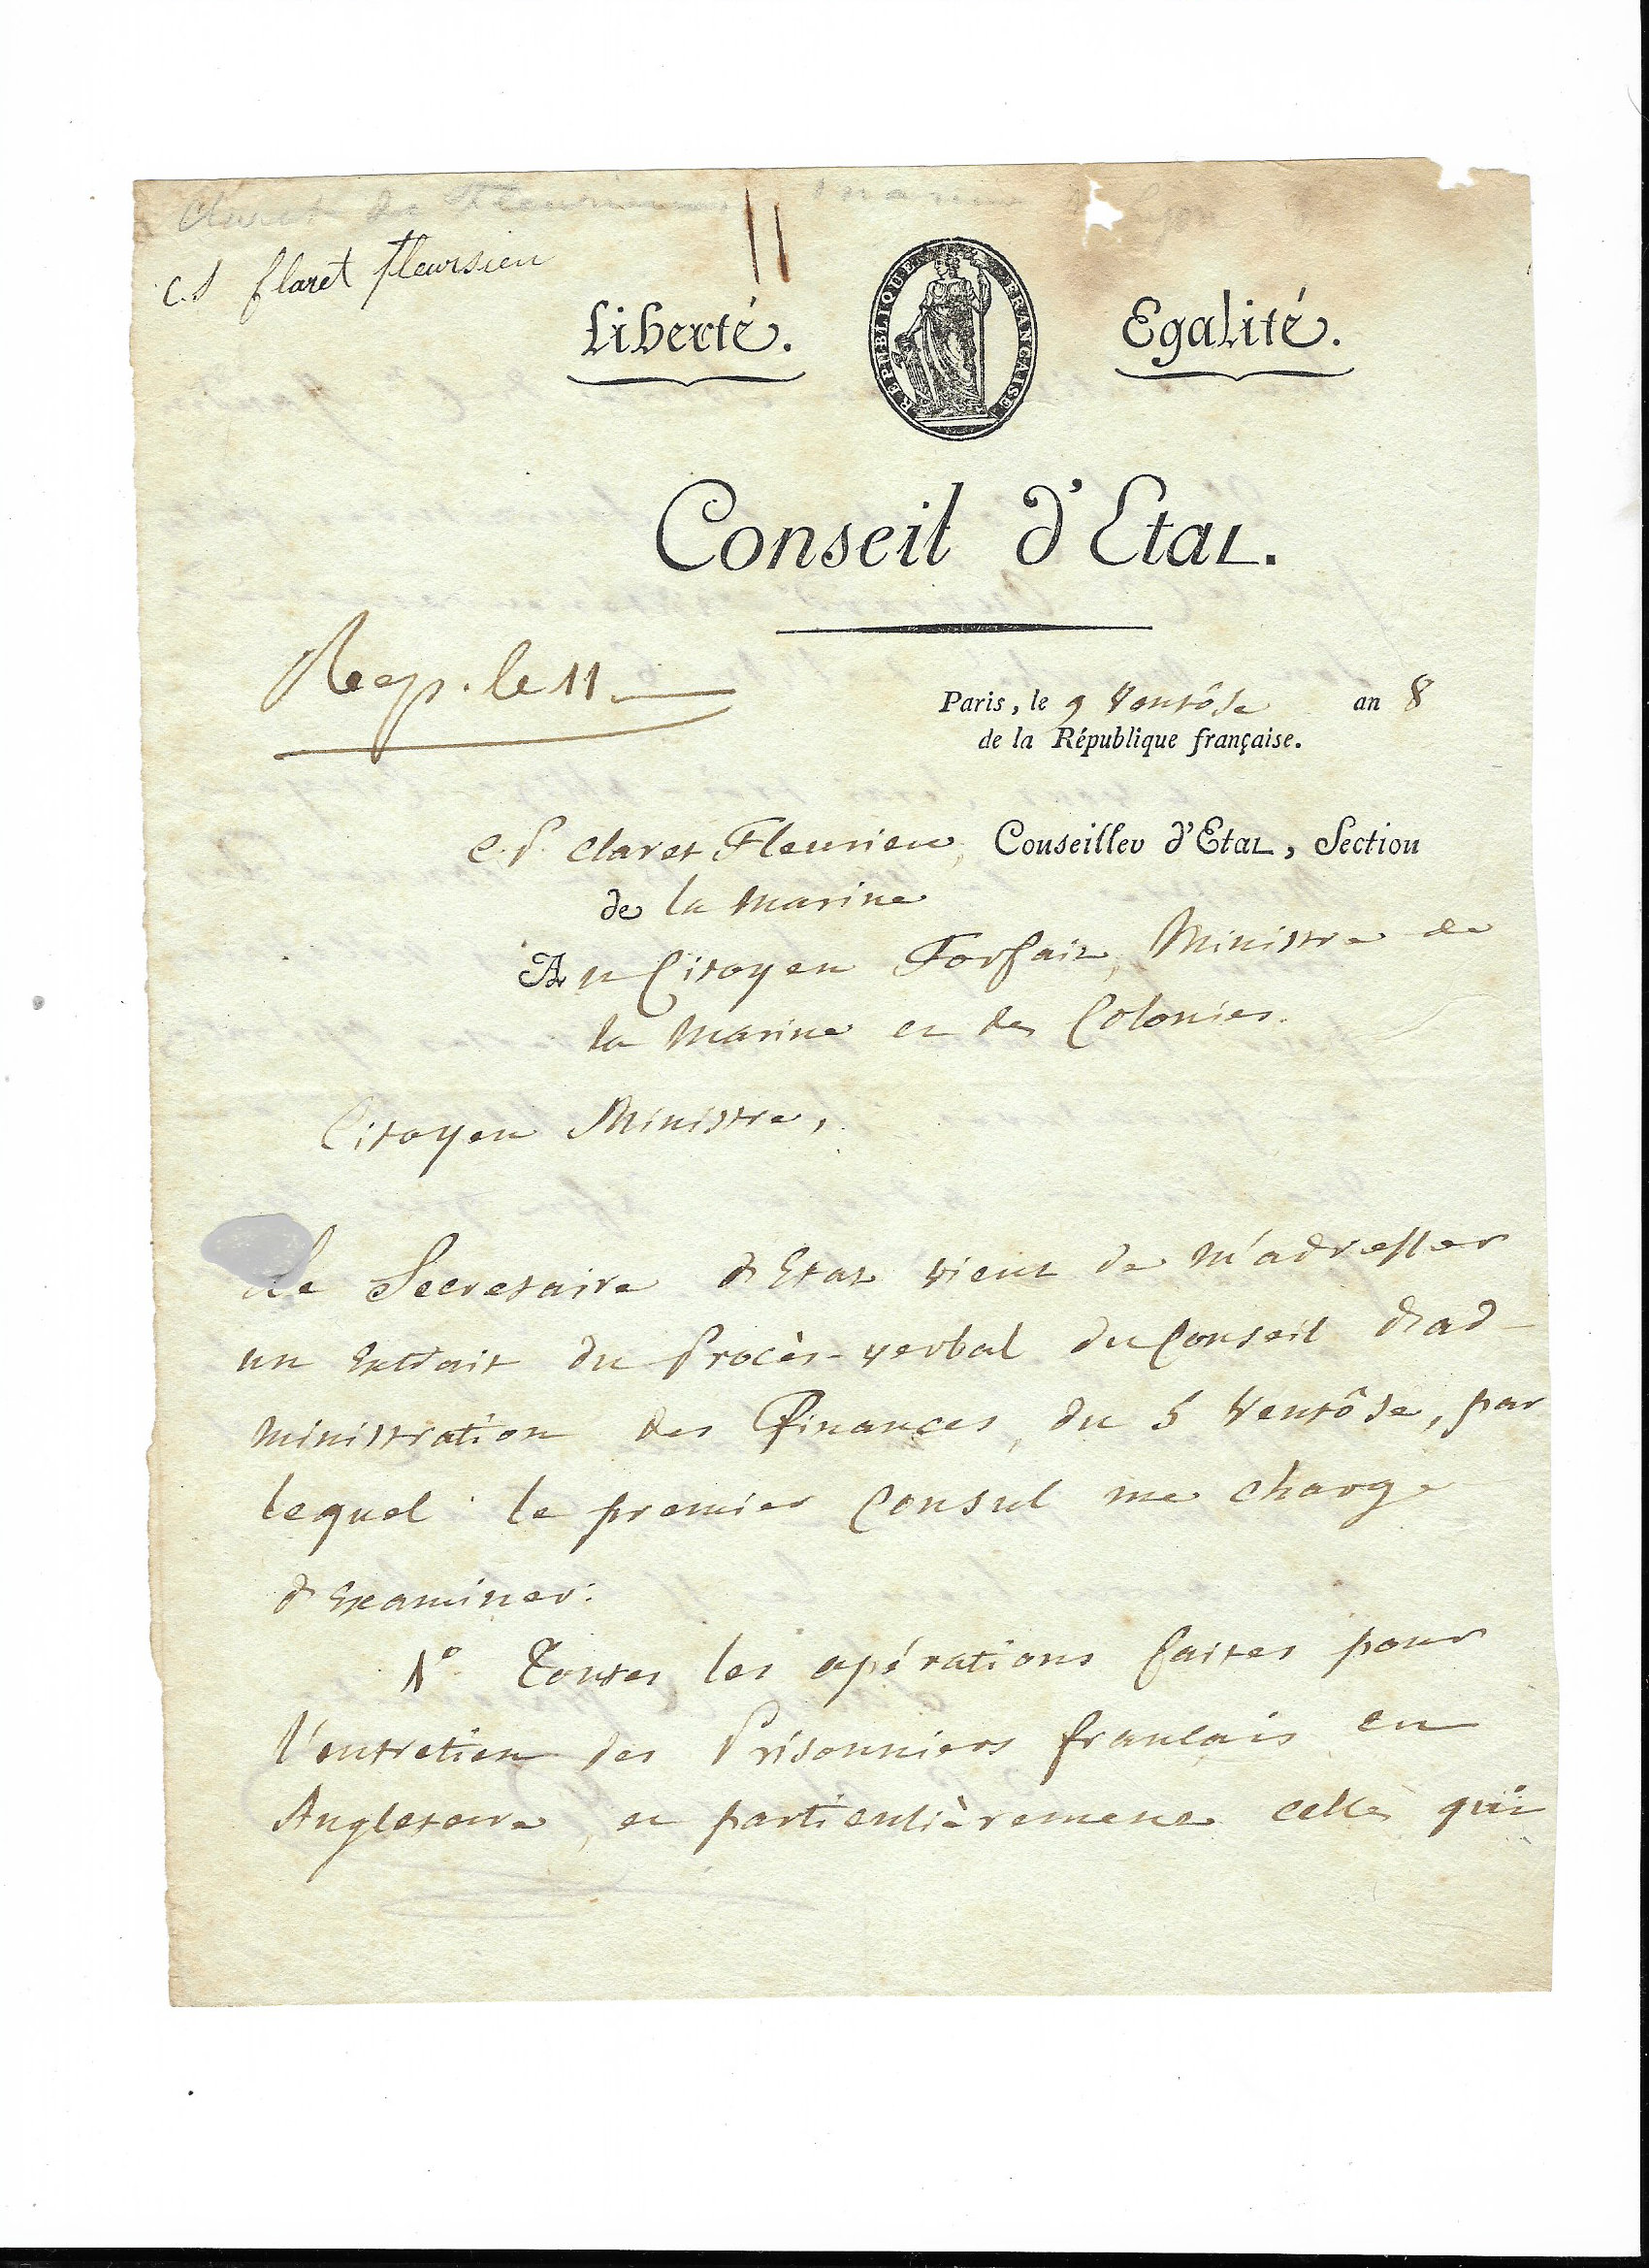 Claret de Fleurieu
C.S flaret fleursieu
11
Liberté.
REPUBLIQUE FRANCAISE
Egalité.
Conseil d'Etat.
Rep. le 11
Paris, le 9 Ventôse an 8
de la République française.
C.P. Claret Fleurieu, Conseiller d'Etat, Section
de la Marine
Au Citoyen Forfait, Ministre de
la Marine et des Colonies.
Citoyen Ministre,
Le Secretaire d'Etat vient de m'adresser
un Extrait du Procès-verbal du Conseil d'ad-
ministration des Finances, du 5 Ventôse, par
lequel le premier Consul me charge
d'Examiner:
1º Toutes les opérations faites pour
l'entretien des Prisonniers français en
Angleterre, et particulièrement celles qui